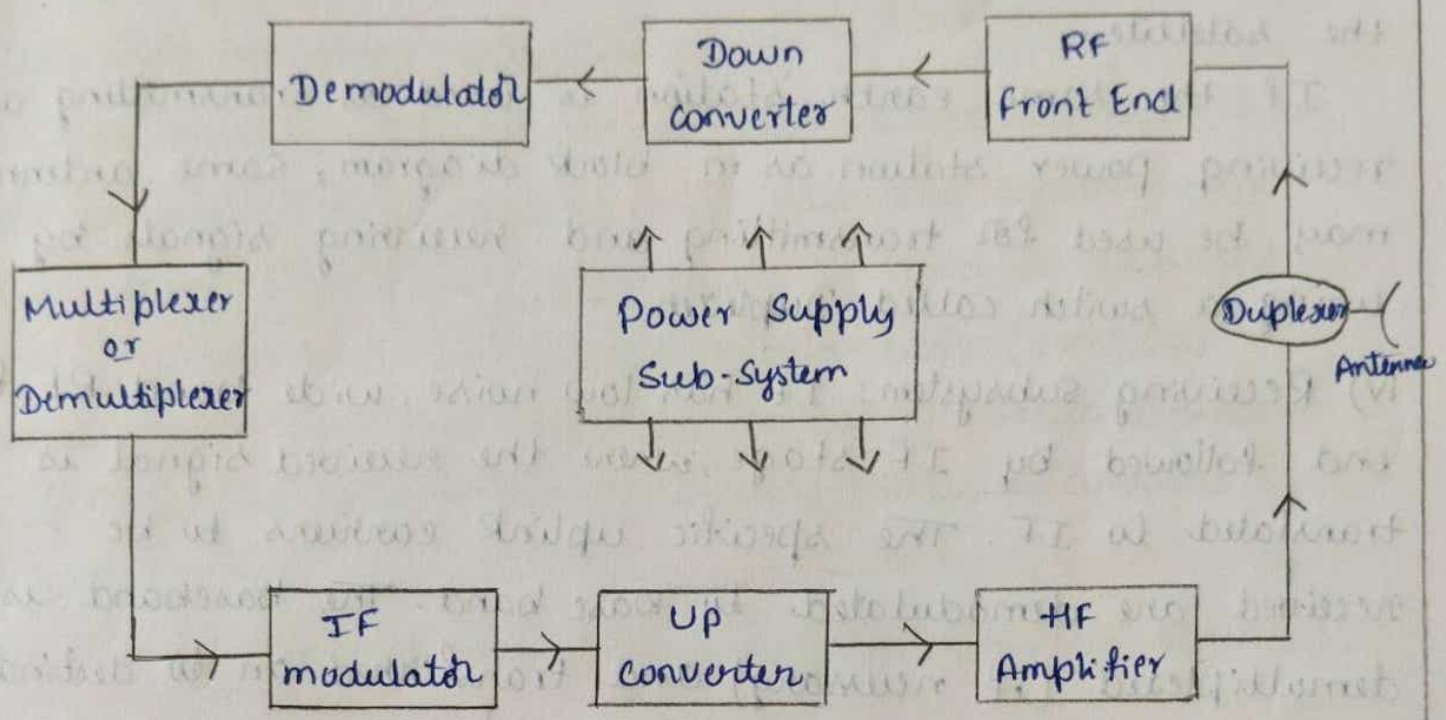 Demodulator
Down
converter
RF
Front End
Multiplexer
or
Demultiplexer
Power Supply
Sub-System
Duplexer
Antenna
IF
modulator
Up
converter
HF
Amplifier